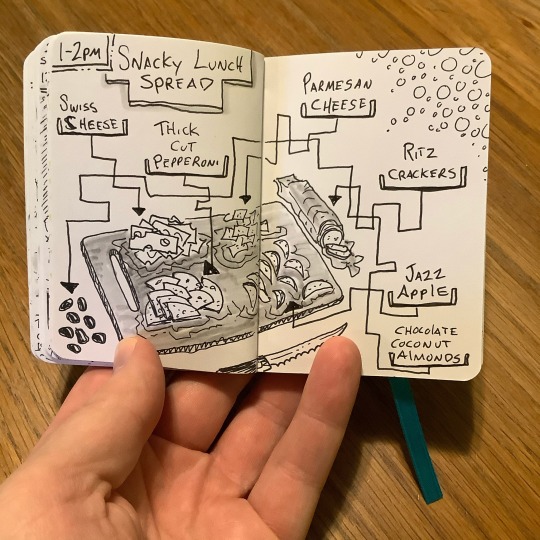 1-2PM
SNACKY LUNCH
SPREAD
SWISS
CHEESE
THICK
CUT
PEPPERONI
PARMESAN
CHEESE
RITZ
CRACKERS
JAZZ
APPLE
CHOCOLATE
COCONUT
ALMONDS